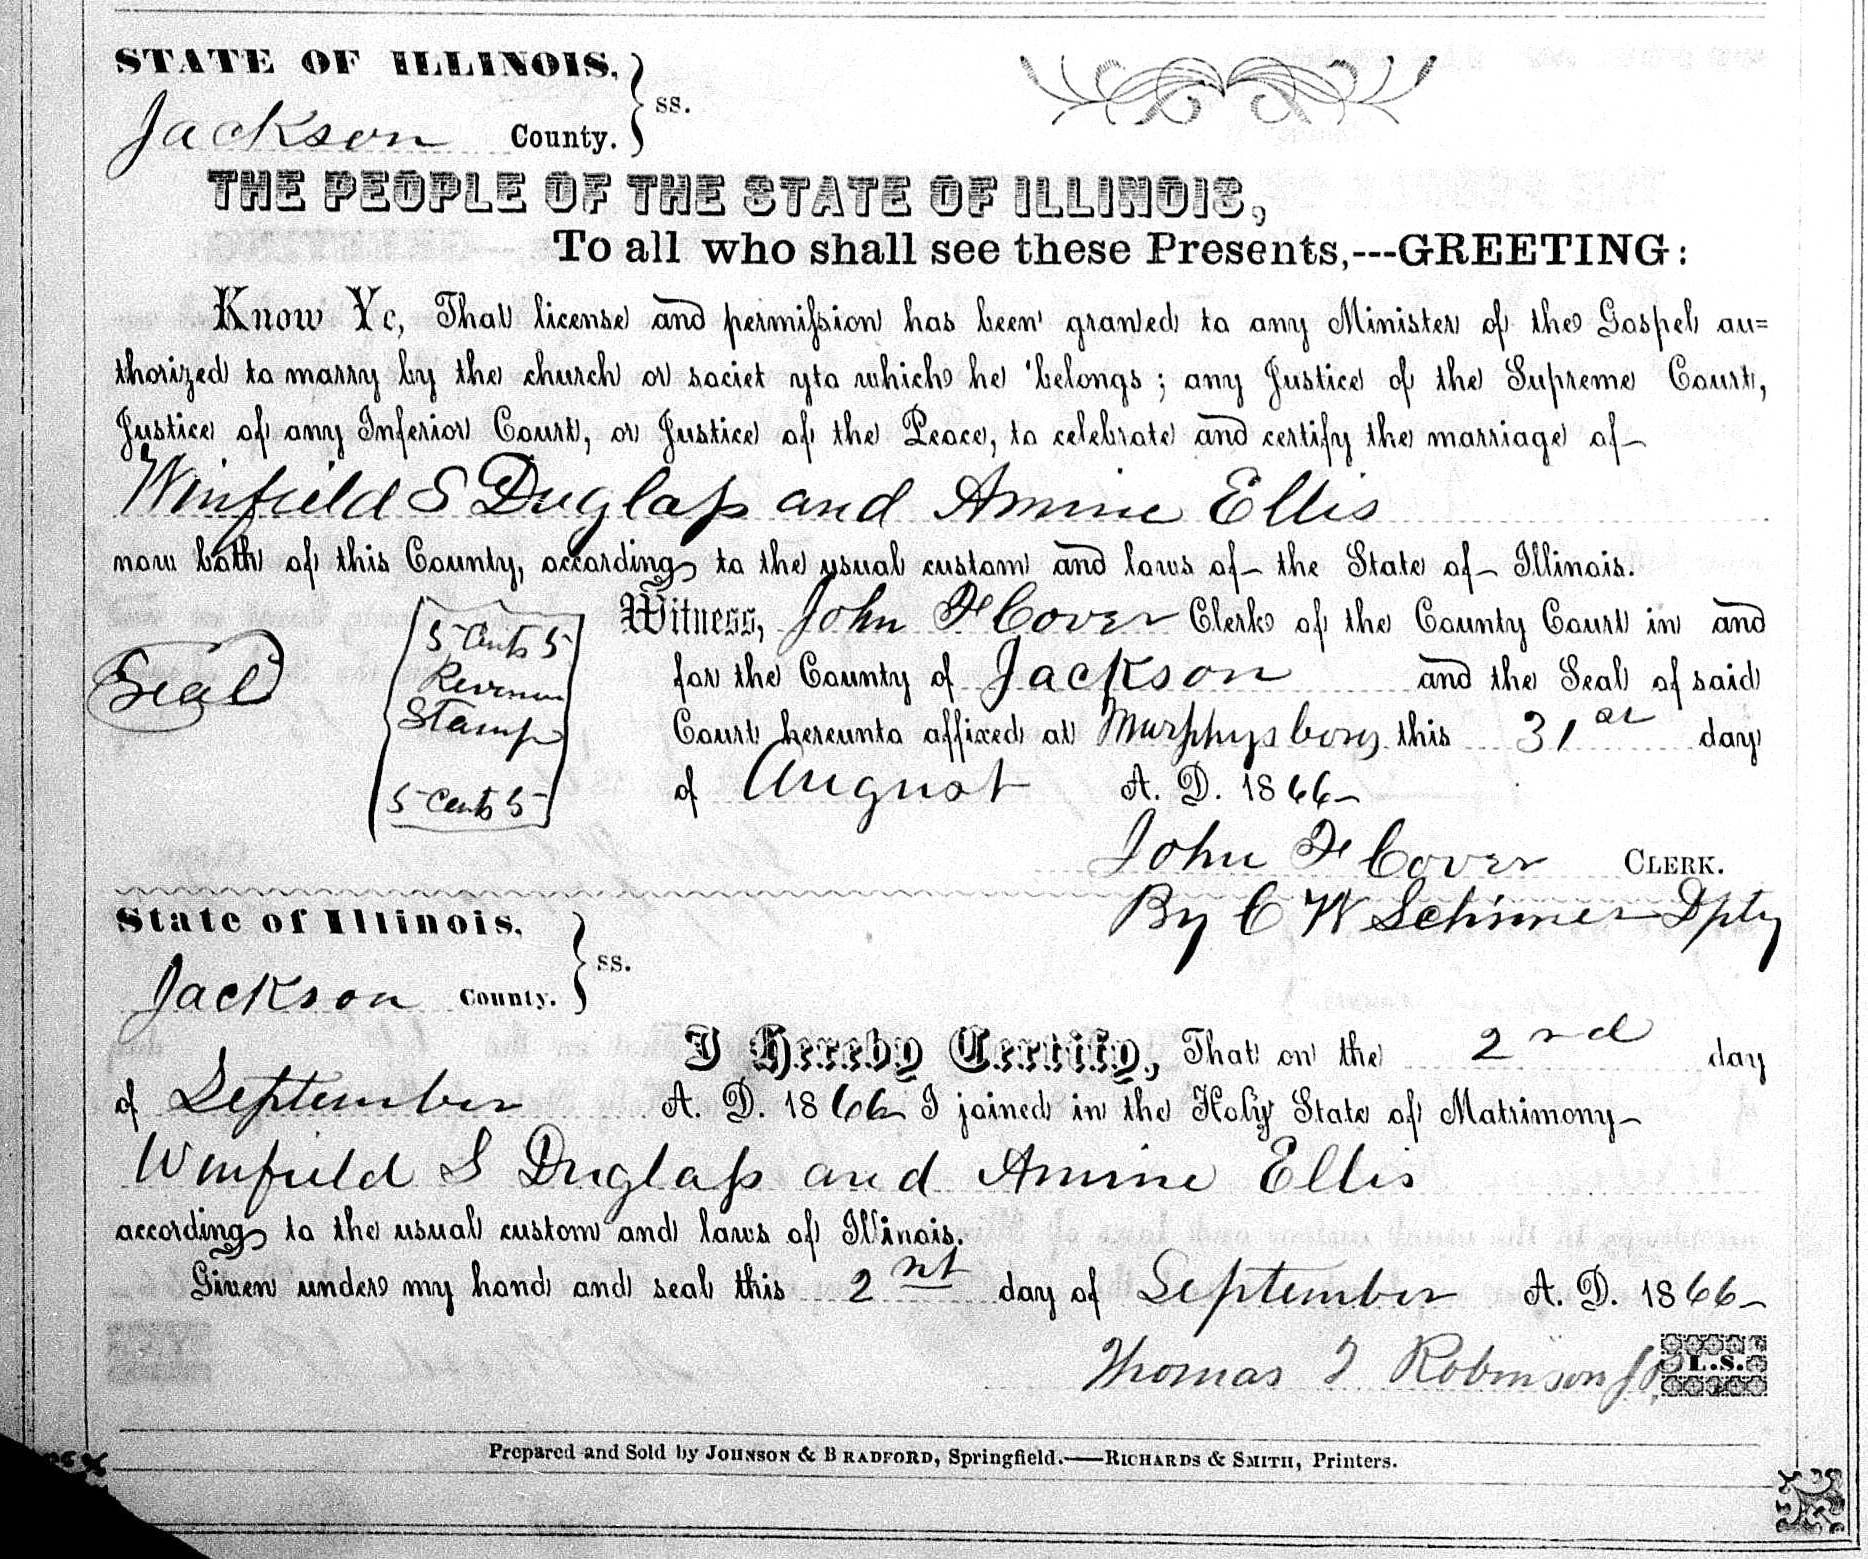 STATE OF ILLINOIS,
Jackson County. } ss.
THE PEOPLE OF THE STATE OF ILLINOIS,
To all who shall see these Presents,---GREETING:
Know Ye, That license and permission has been granted to any Minister of the Gospel au=
thorized to marry by the church or societ yto which he belongs; any Justice of the Supreme Court,
Justice of any Inferior Court, or Justice of the Peace, to celebrate and certify the marriage of
Winfield S Duglass and Amine Ellis
now both of this County, according to the usual custom and laws of the State of Illinois.
Seal
5 Cents 5
Revenue
Stamp
5 Cents 5
Witness, John F Cover Clerk of the County Court in and
for the County of Jackson and the Seal of said
Court hereunto affixed at Murphysboro this 31st day
of August A. D. 1866
John F Cover CLERK.
By C W Schimer Dpty
State of Illinois,
Jackson County. } ss.
I Hereby Certify, That on the 2nd day
of September A. D. 1866 I joined in the Holy State of Matrimony
Winfield S Duglass and Amine Ellis
according to the usual custom and laws of Illinois.
Given under my hand and seal this 2nt day of September A. D. 1866
Thomas T Robinson J.P. L.S.
Prepared and Sold by JOHNSON & BRADFORD, Springfield.—RICHARDS & SMITH, Printers.